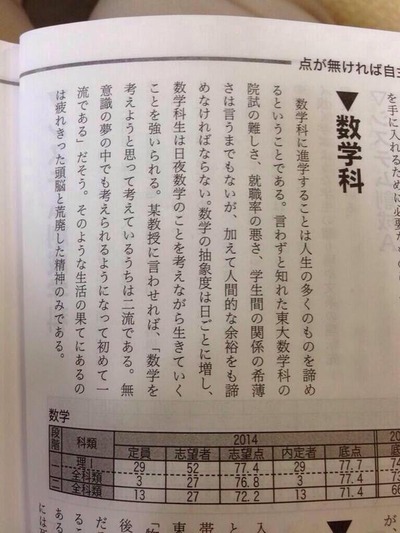 点が無ければ自主
を手に入れるために必要
▼数学科
数学科に進学することは人生の多くのものを諦め
るということである。言わずと知れた東大数学科の
院試の難しさ、就職率の悪さ、学生間の関係の希薄
さは言うまでもないが、加えて人間的な余裕をも諦
めなければならない。数学の抽象度は日ごとに増し、
数学科生は日夜数学のことを考えながら生きていく
ことを強いられる。某教授に言わせれば、「数学を
考えようと思って考えているうちは二流である。無
意識の夢の中でも考えられるようになって初めて一
流である」だそう。そのような生活の果てにあるの
は疲れきった頭脳と荒廃した精神のみである。
数学
段階 科類 2014 20
定員 志望者 志望点 内定者 底点
一 理一 29 52 77.4 29 77.7 74
全科類 3 27 76.8 3 77.4
二 全科類 13 27 72.2 13 71.4 66